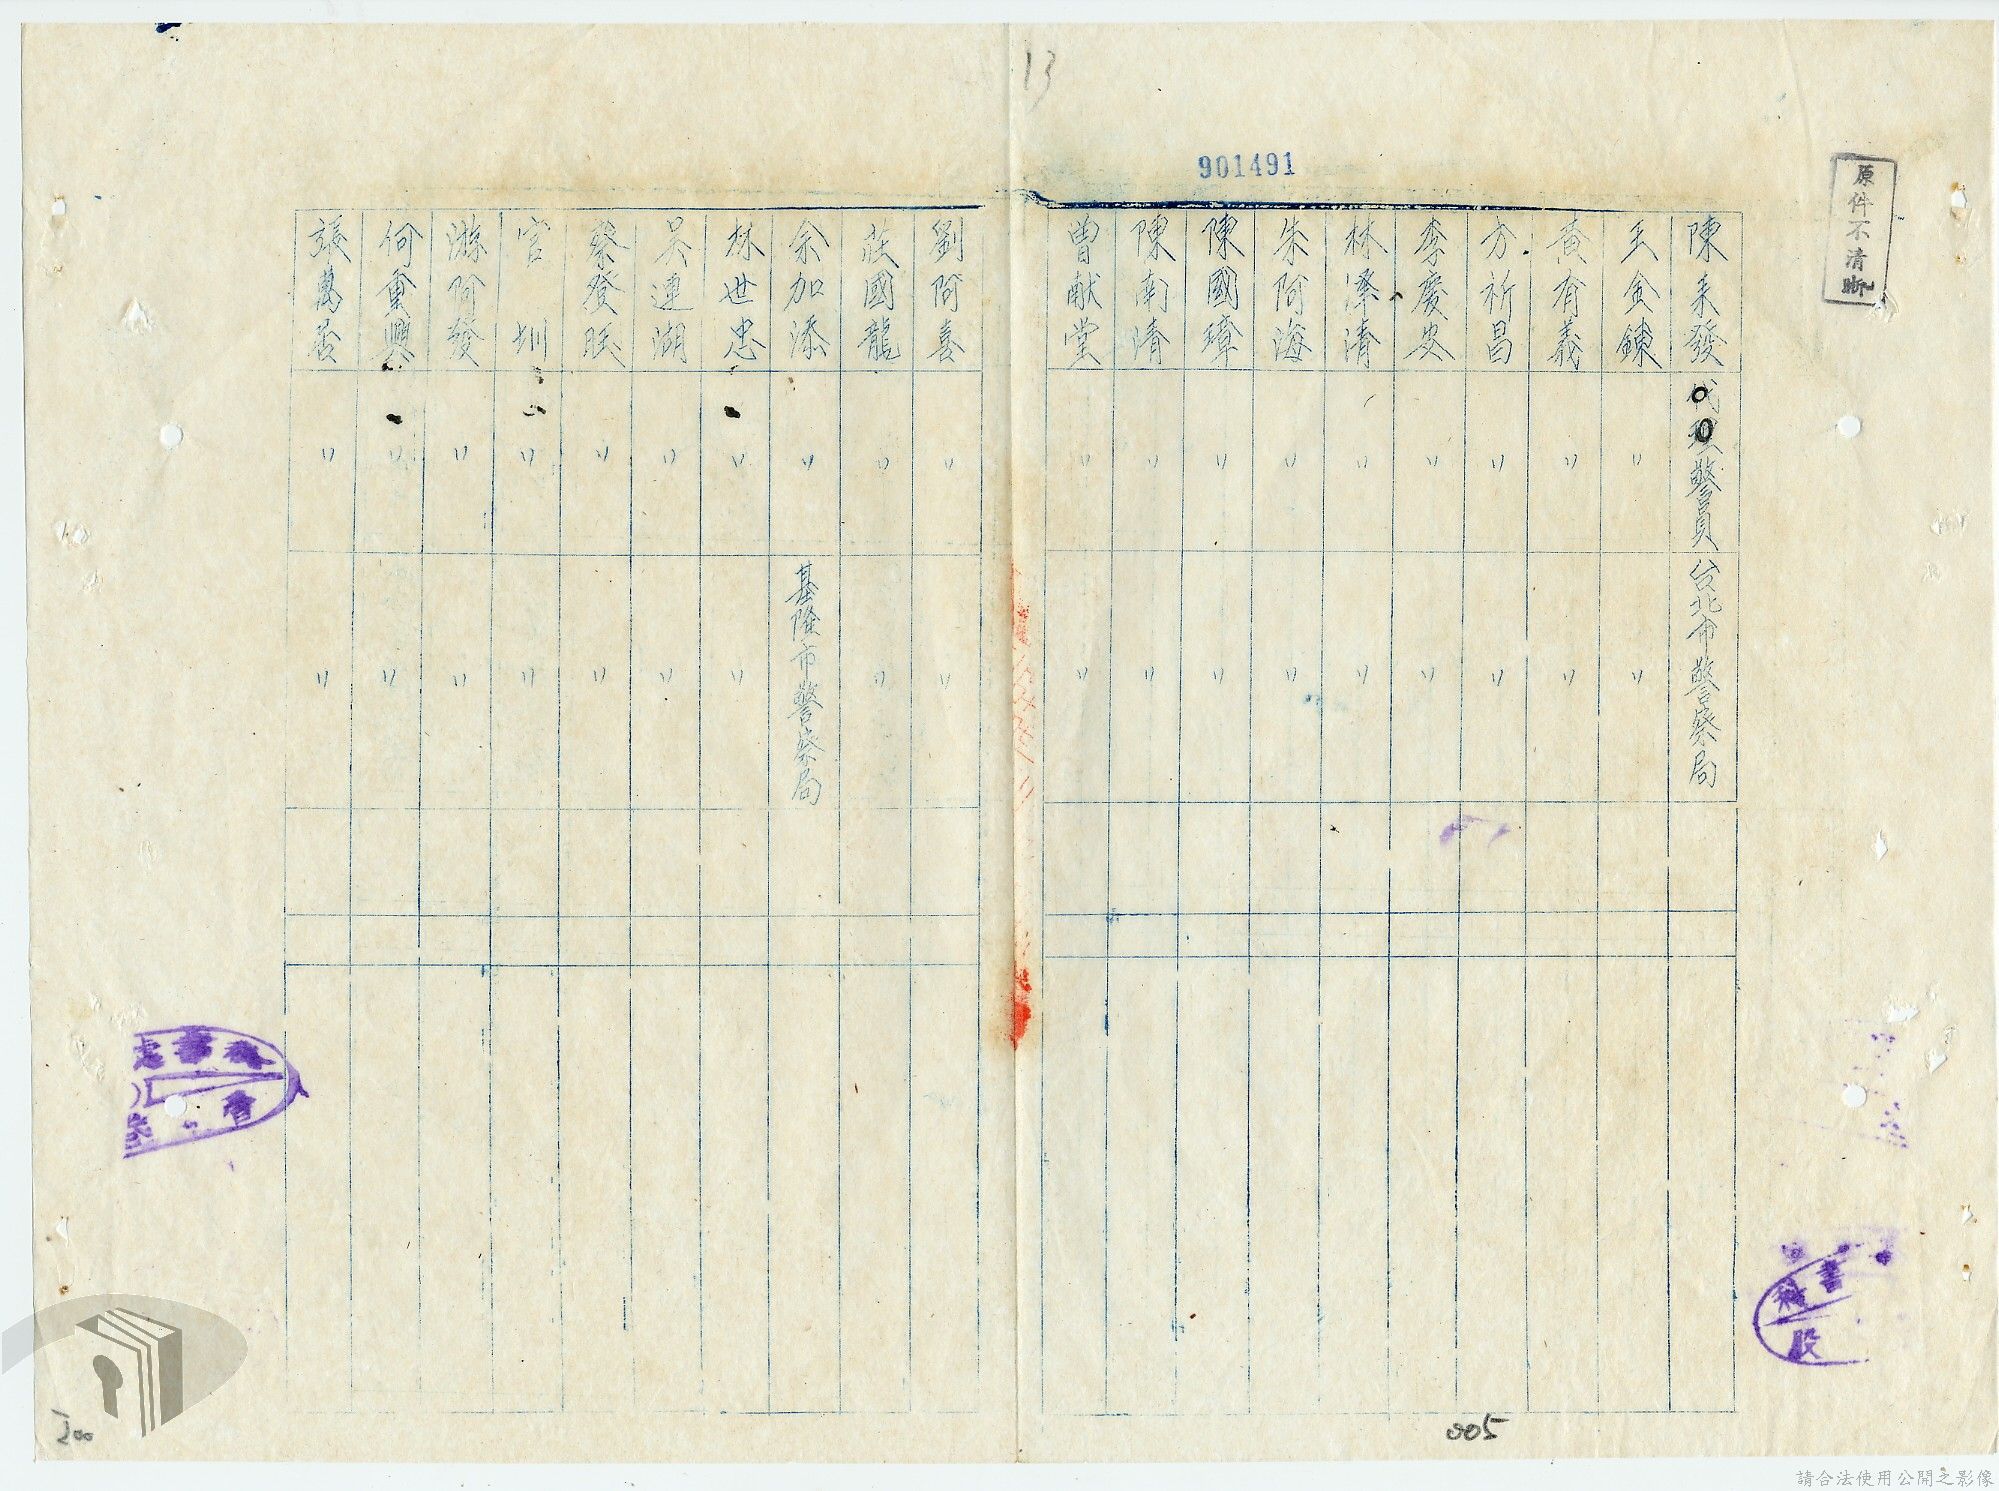 13
901491
原件不清晰
陳来發 代理警員 台北市警察局
王金鍊 〃 〃
黃有義 〃 〃
方祈昌 〃 〃
李慶安 〃 〃
林澤清 〃 〃
朱阿海 〃 〃
陳國璋 〃 〃
陳南清 〃 〃
曾献堂 〃 〃
劉阿喜 〃 〃
莊國龍 〃 〃
余加添 〃 基隆市警察局
林世忠 〃 〃
吳連湖 〃 〃
蔡登旺 〃 〃
官圳 〃 〃
游阿發 〃 〃
何重興 〃 〃
張萬居 〃 〃
005
請合法使用公開之影像